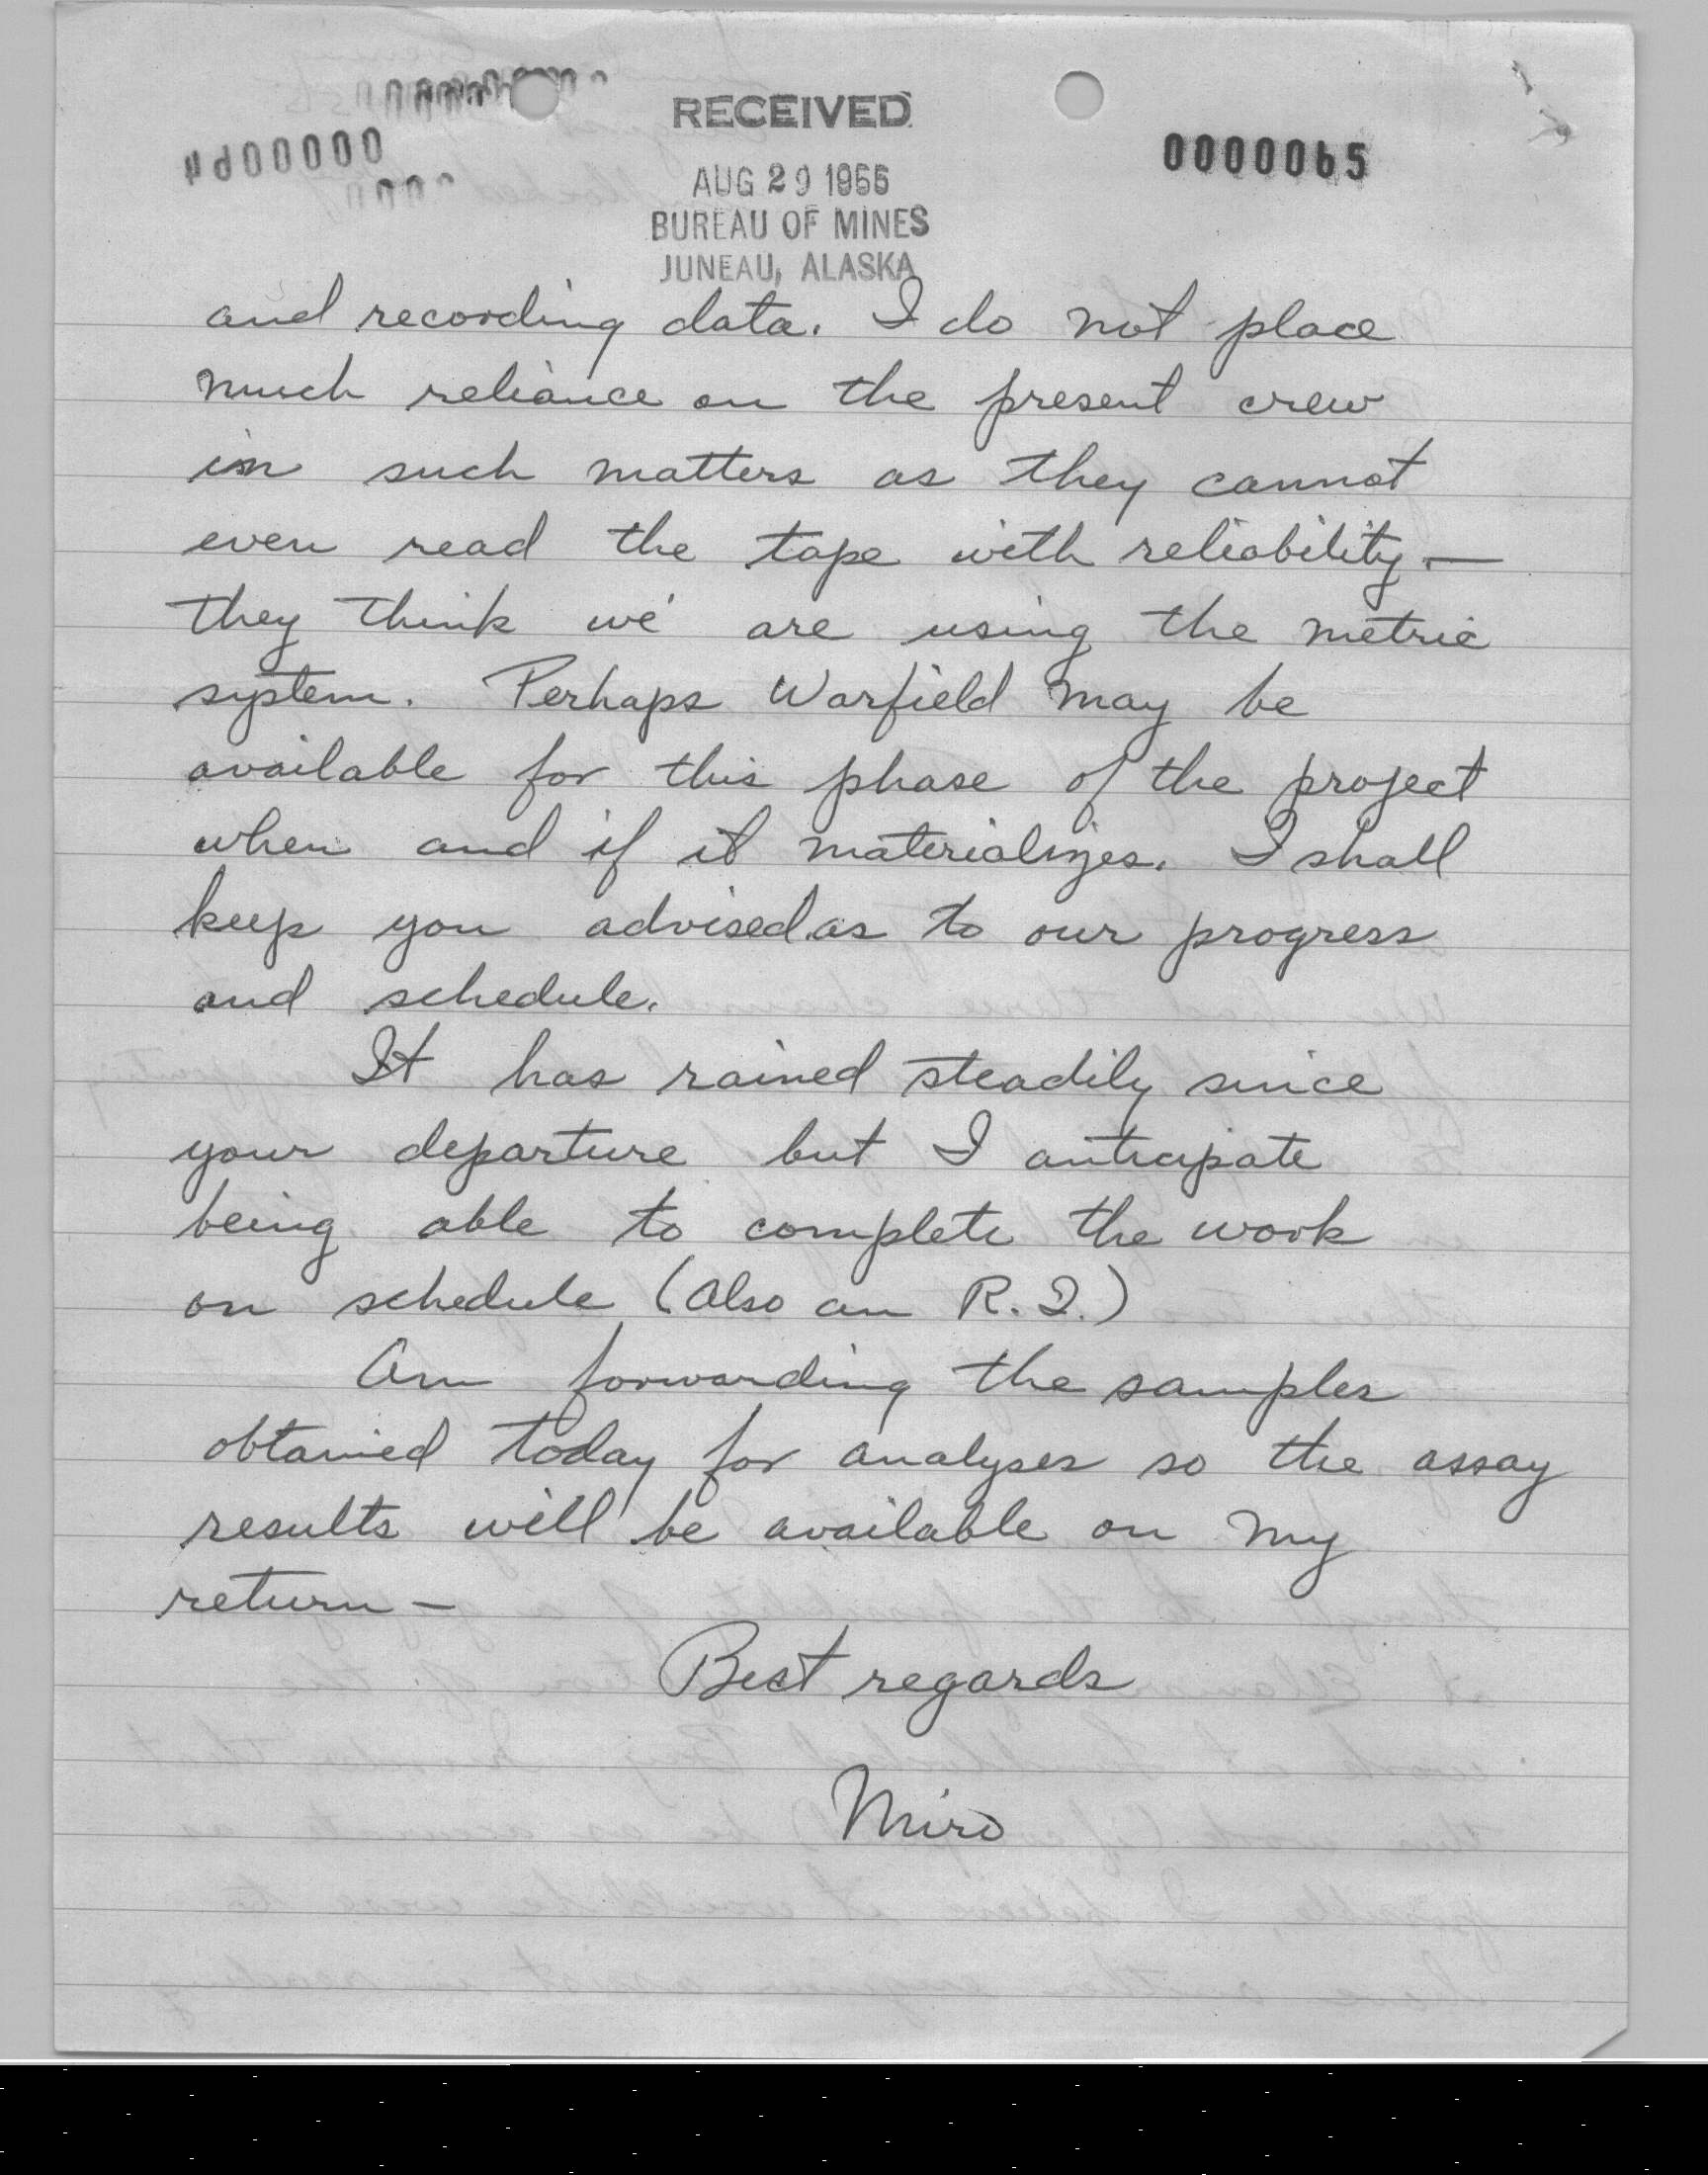 RECEIVED
0000065
AUG 29 1966
BUREAU OF MINES
JUNEAU, ALASKA
and recording data. I do not place
much reliance on the present crew
in such matters as they cannot
even read the tape with reliability —
they think we are using the metric
system. Perhaps Warfield may be
available for this phase of the project
when and if it materializes. I shall
keep you advised as to our progress
and schedule.
It has rained steadily since
your departure but I anticipate
being able to complete the work
on schedule (also an R.I.)
Am forwarding the samples
obtained today for analyses so the assay
results will be available on my
return —
Best regards
Miro